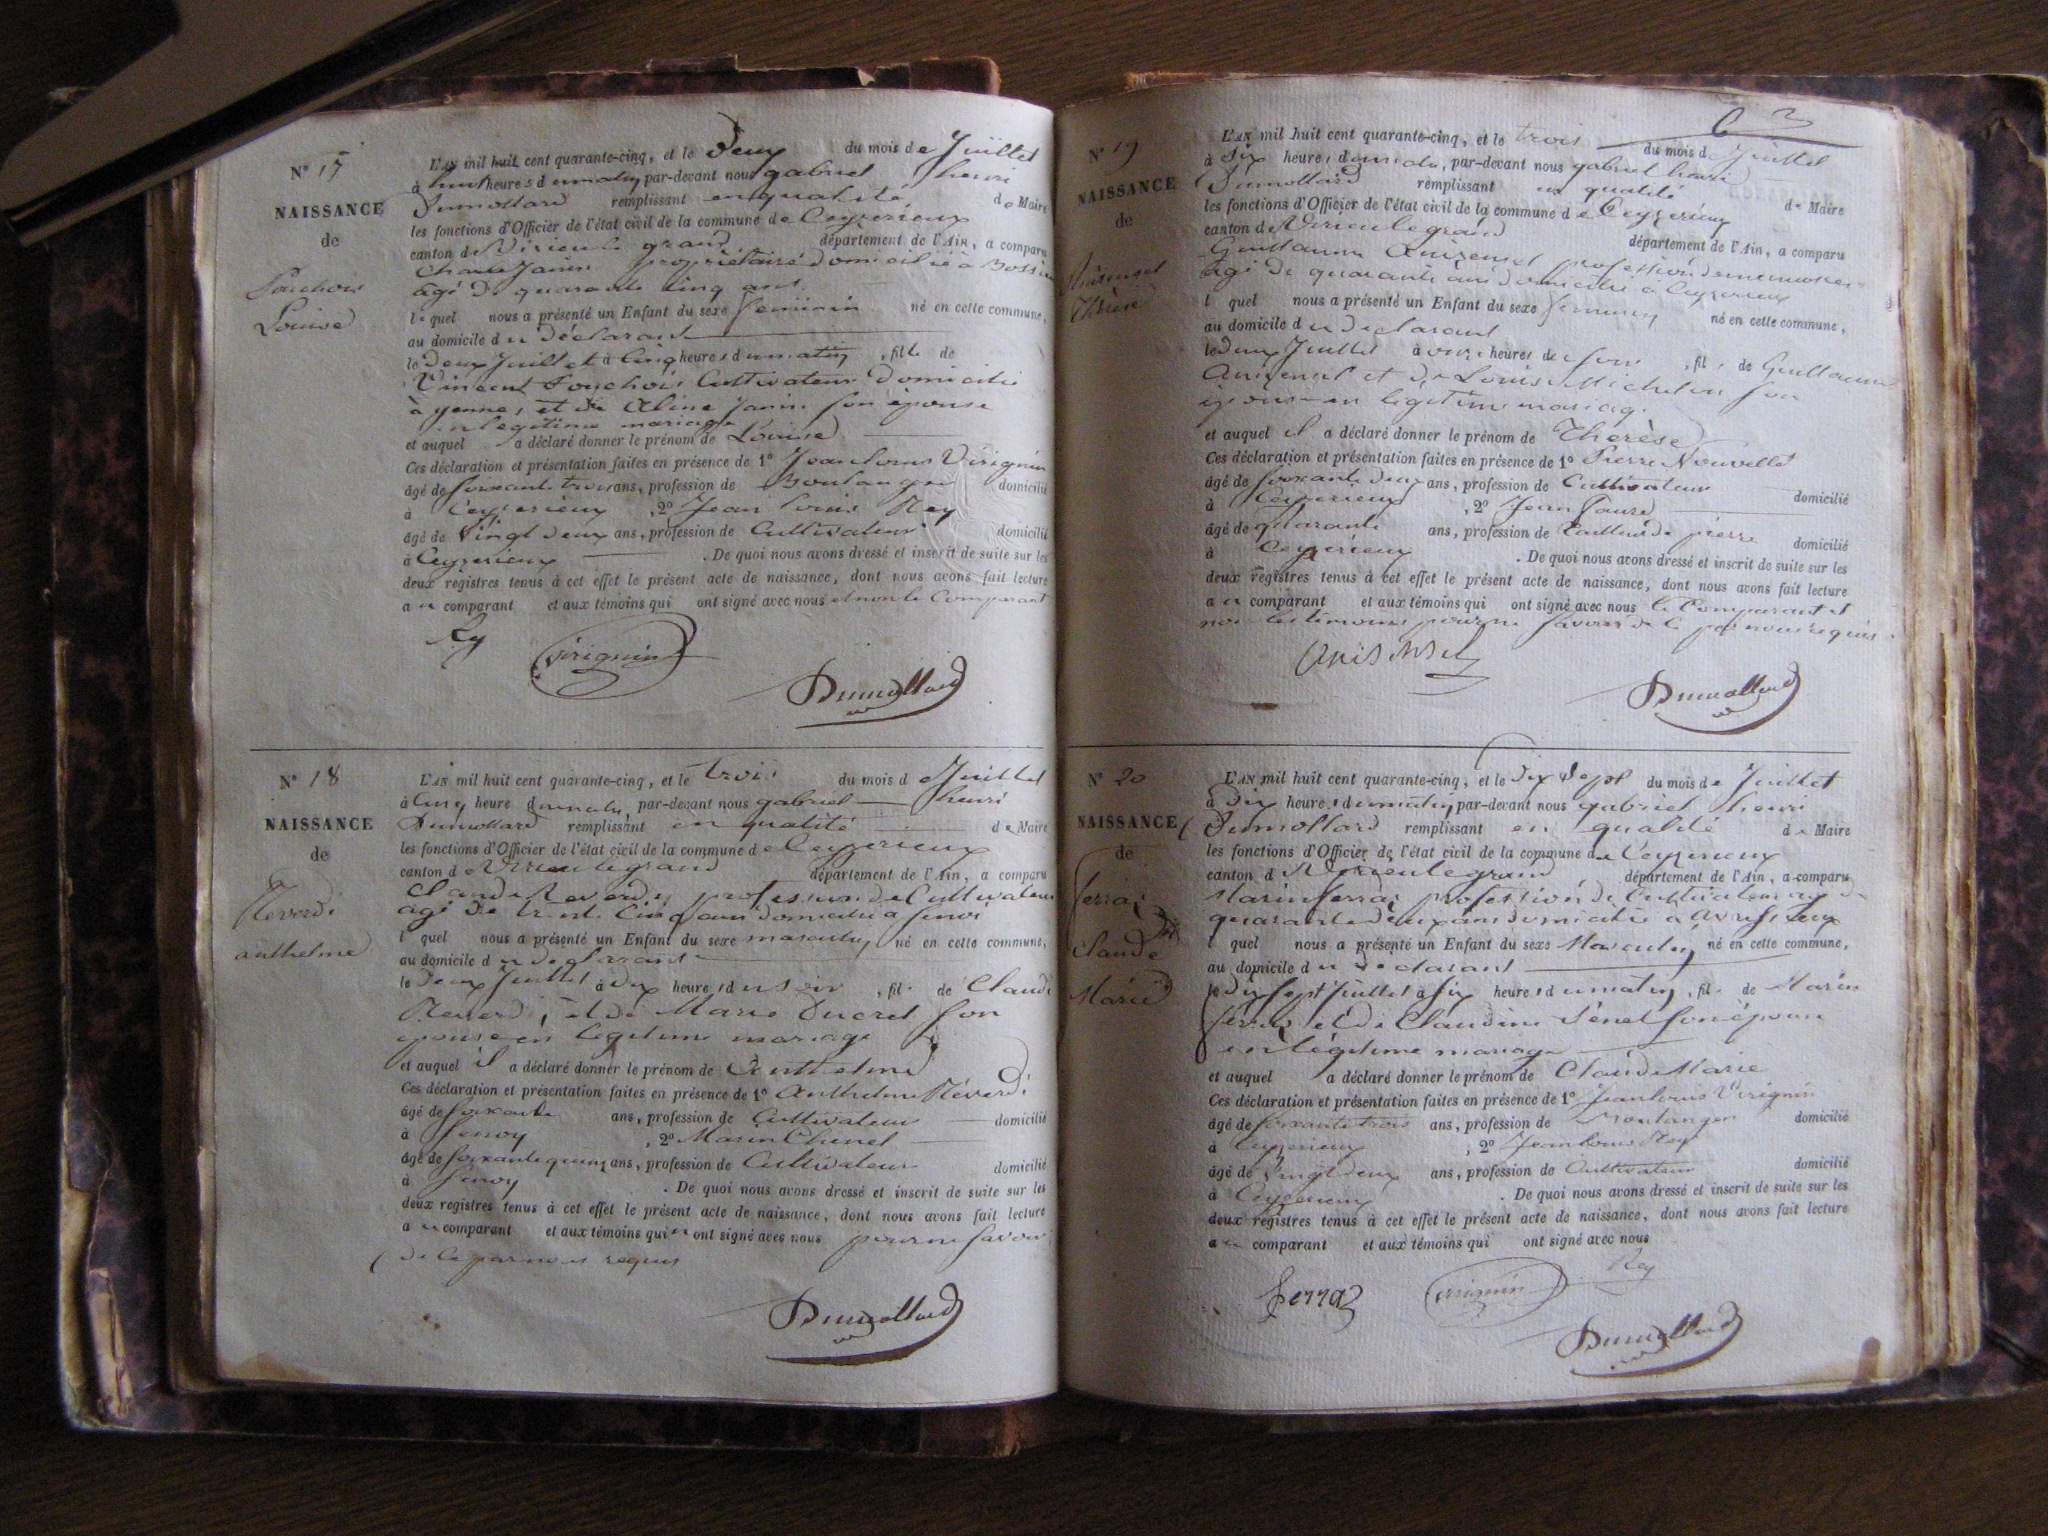 N° 17
NAISSANCE
de
Louise
L'AN mil huit cent quarante-cinq, et le Deux du mois de Juillet
à huit heures du matin, par-devant nous gabriel henri
Dumollard remplissant en qualité de Maire
les fonctions d'Officier de l'état civil de la commune de Ceyzerieux
canton de Virieu le grand département de l'Ain, a comparu
Charle Janin propriétaire domicilié à
âgé De quarante cinq ans
lequel nous a présenté un Enfant du sexe feminin né en cette commune,
au domicile du déclarant
le Deux Juillet à Cinq heures du matin, fille de
Vincent Cultivateur Domicilié
à yenne, et de Aline Janin son epouse
en legitime mariage
et auquel a déclaré donner le prénom de Louise
Ces déclaration et présentation faites en présence de 1° Jean louis Virignin
âgé de soixante trois ans, profession de Boulanger domicilié
à Ceyzerieux, 2° Jean louis Rey
âgé de Vingt deux ans, profession de Cultivateur domicilié
à Ceyzerieux. De quoi nous avons dressé et inscrit de suite sur les
deux registres tenus à cet effet le présent acte de naissance, dont nous avons fait lecture
au comparant et aux témoins qui ont signé avec nous et non le Comparant
Rey
Virignin
Dumollard
N° 18
NAISSANCE
de
Reverdi
anthelme
L'AN mil huit cent quarante-cinq, et le trois du mois de Juillet
à Cinq heure du matin, par-devant nous gabriel henri
Dumollard remplissant en qualité de Maire
les fonctions d'Officier de l'état civil de la commune de Ceyzerieux
canton de Virieu le grand département de l'Ain, a comparu
Claude Reverdi, profession de Cultivateur
agé De trente Cinq ans domicilié a
lequel nous a présenté un Enfant du sexe masculin né en cette commune,
au domicile du declarant
le Deux Juillet à Dix heures du soir, fils de Claude
Reverdi, et de Marie Ducret son
epouse en legitime mariage
et auquel il a déclaré donner le prénom de Anthelme
Ces déclaration et présentation faites en présence de 1° Anthelme Réverdi
âgé de soixante ans, profession de Cultivateur domicilié
à, 2° Marin Chenel
âgé de soixante quinze ans, profession de Cultivateur domicilié
à. De quoi nous avons dressé et inscrit de suite sur les
deux registres tenus à cet effet le présent acte de naissance, dont nous avons fait lecture
au comparant et aux témoins qui n ont signé avec nous pour ne savoir
de ce par nous requis
Dumollard
N° 19
NAISSANCE
de
Thérèse
L'AN mil huit cent quarante-cinq, et le trois du mois de Juillet
à six heures du matin, par-devant nous gabriel henri
Dumollard remplissant en qualité de Maire
les fonctions d'Officier de l'état civil de la commune de Ceyzerieux
canton de Virieu le grand département de l'Ain, a comparu
Guillaume profession de menuisier
agé de quarante ans domicilié à Ceyzerieux
lequel nous a présenté un Enfant du sexe feminin né en cette commune,
au domicile du declarant
le deux Juillet à onze heures du soir, fille de Guillaume
et de Louise Michelon son
epouse en legitime mariage
et auquel il a déclaré donner le prénom de Therèse
Ces déclaration et présentation faites en présence de 1° Pierre Nouvelle
âgé de soixante deux ans, profession de Cultivateur domicilié
à Ceyzerieux, 2° Jean Faure
âgé de quarante ans, profession de tailleur de pierre domicilié
à Ceyzerieux. De quoi nous avons dressé et inscrit de suite sur les
deux registres tenus à cet effet le présent acte de naissance, dont nous avons fait lecture
au comparant et aux témoins qui ont signé avec nous le Comparant et
non les temoins pour ne savoir de ce par nous requis
Dumollard
N° 20
NAISSANCE
de
ferraz
Claude
Marie
L'AN mil huit cent quarante-cinq, et le dix Sept du mois de Juillet
à Dix heures du matin, par-devant nous gabriel henri
Dumollard remplissant en qualité de Maire
les fonctions d'Officier de l'état civil de la commune de Ceyzerieux
canton de Virieu le grand département de l'Ain, a comparu
Marin ferraz profession de Cultivateur agé de
quarante deux ans domicilié à
lequel nous a présenté un Enfant du sexe Masculin né en cette commune,
au domicile du declarant
le dix sept Juillet à six heures du matin, fils de Marin
ferraz et de Claudine son épouse
en légitime mariage
et auquel a déclaré donner le prénom de Claude Marie
Ces déclaration et présentation faites en présence de 1° Jean louis Virignin
âgé de soixante trois ans, profession de Boulanger domicilié
à Ceyzerieux, 2° Jean louis Rey
âgé de Vingt deux ans, profession de Cultivateur domicilié
à Ceyzerieux. De quoi nous avons dressé et inscrit de suite sur les
deux registres tenus à cet effet le présent acte de naissance, dont nous avons fait lecture
au comparant et aux témoins qui ont signé avec nous
Rey
ferraz
Virignin
Dumollard